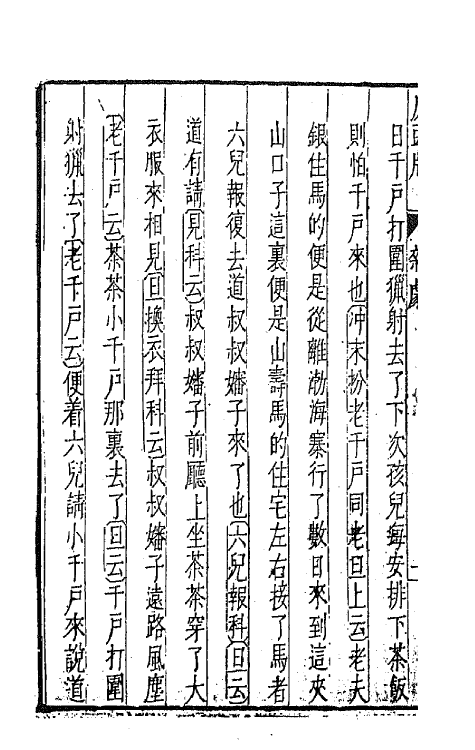 日千戶打圍獵射去了下次孩兒每安排下茶飯
則怕千戶來也〔沖末扮老千戶同老旦上云〕老夫
銀住馬的便是從離渤海寨行了數日來到這夾
山口子這裏便是山壽馬的住宅左右接了馬者
六兒報復去道叔叔嬸子來了也〔六兒報科〕〔旦云〕
道有請〔見科云〕叔叔嬸子前廳上坐茶茶穿了大
衣服來相見〔旦換衣拜科云〕叔叔嬸子遠路風塵
〔老千戶云〕茶茶小千戶那裏去了〔旦云〕千戶打圍
射獵去了〔老千戶云〕便着六兒請小千戶來說道